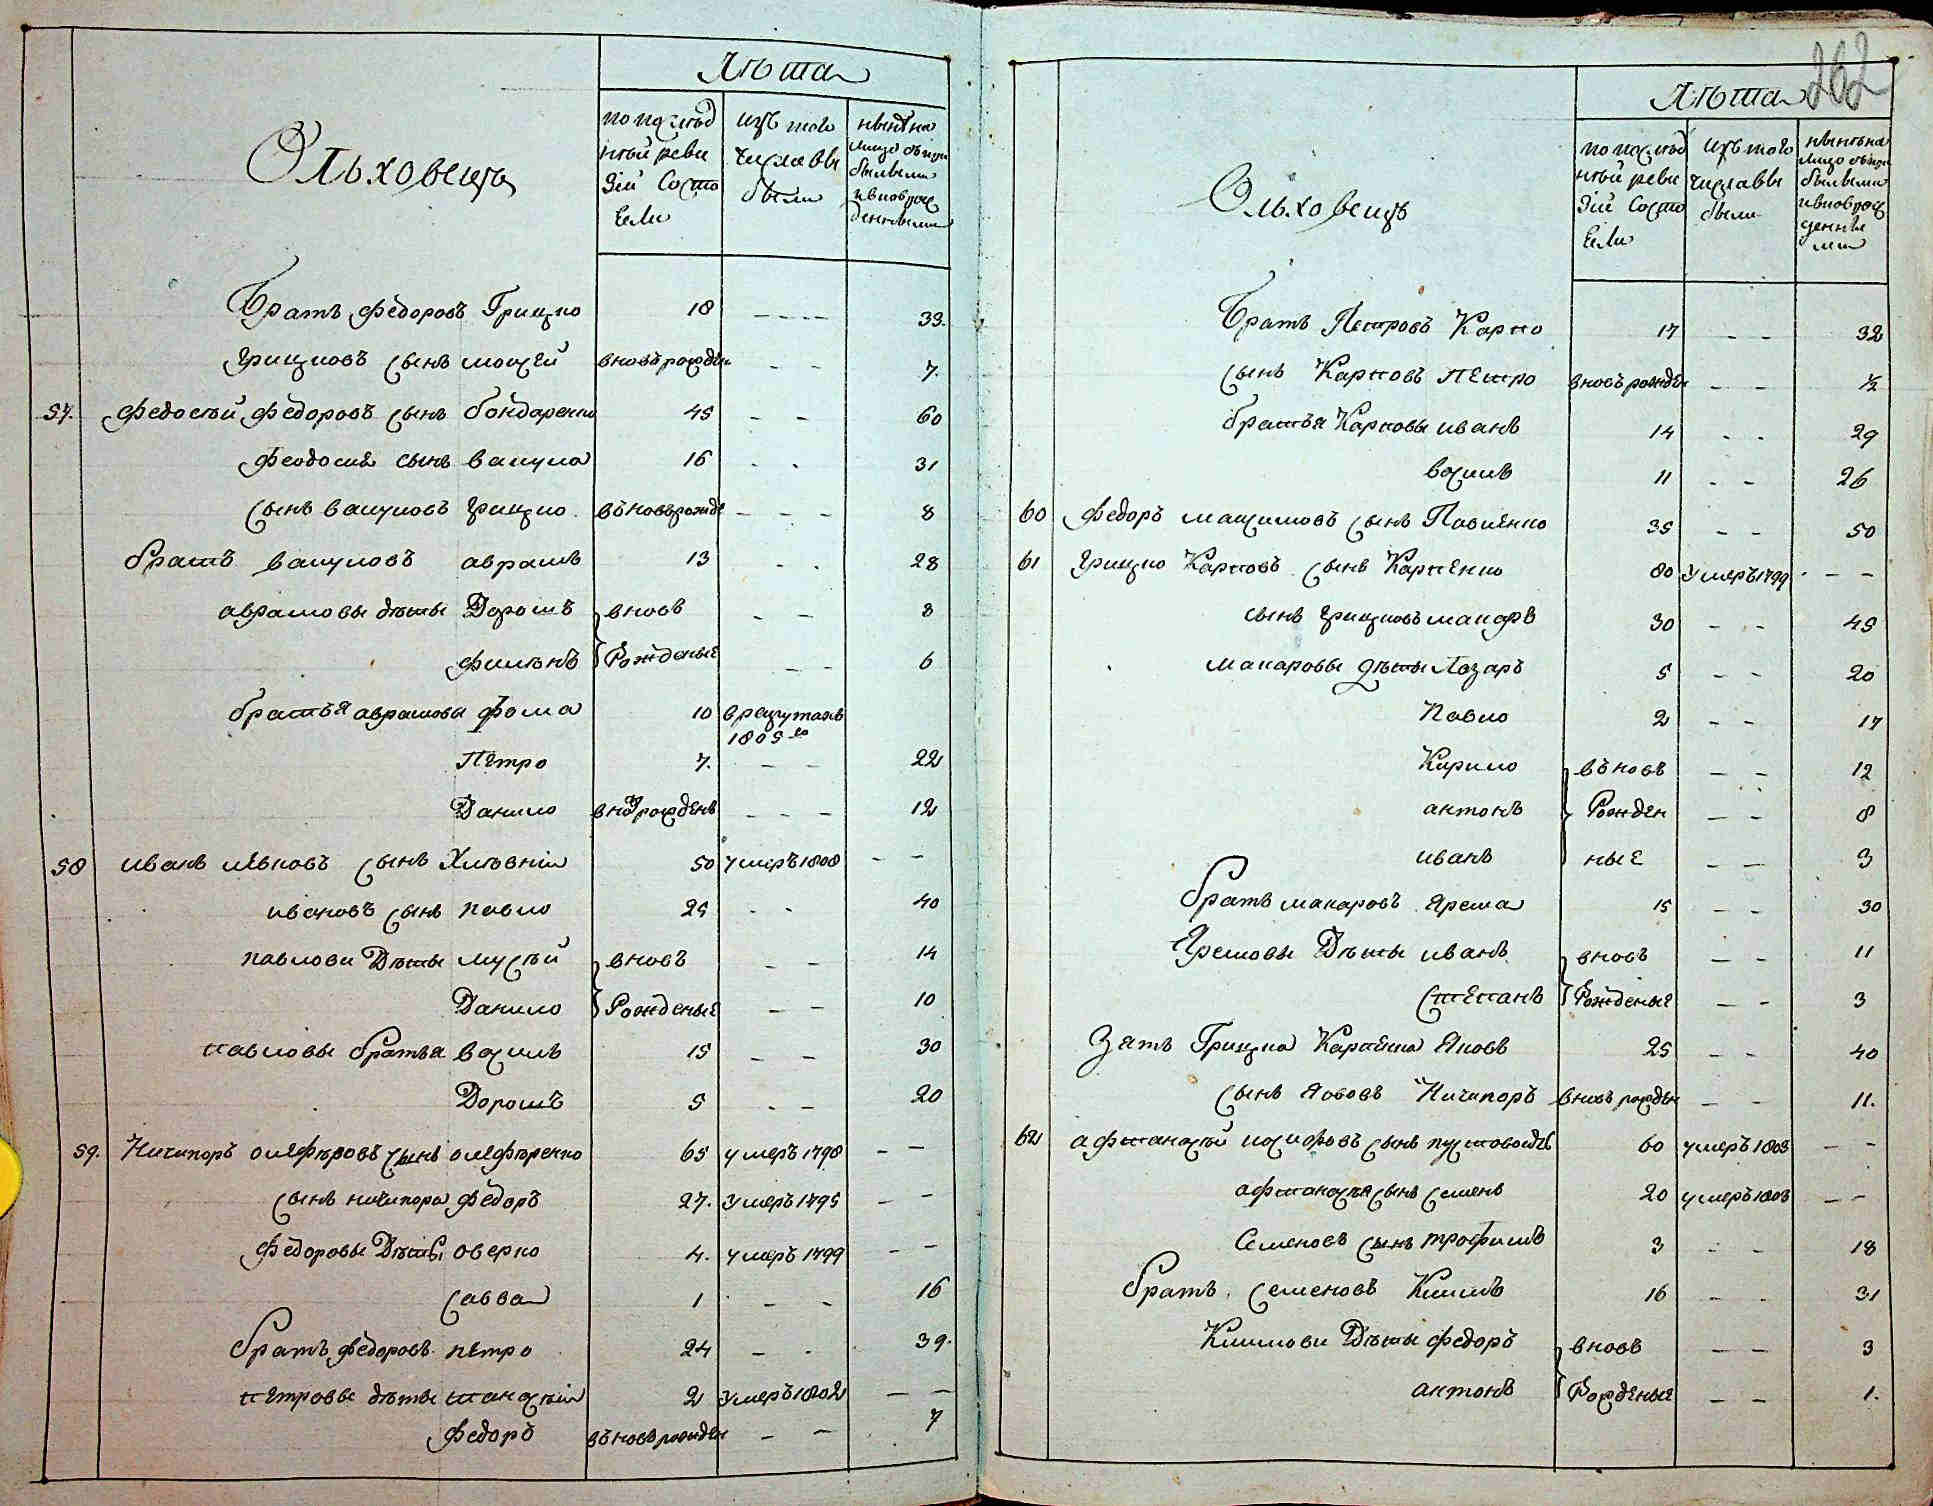 Лѣта
Ольховецъ
по послѣд
нѣй реви
зіи состо
яли
изъ того
числа вы
были
нынѣ на
лицо съ при
былыми
и вновь рож
денными
Братъ Федоровъ Грицко 18 - - - 33.
Грицковъ сынъ моисей вновь рожден - - 7.
57. Федосѣй Федоровъ сынъ бондаренко 45 - - 60
Феодосия сынъ вакула 16 - - 31
сынъ вакуловъ грицко въновь рожде - - - 8
братъ вакуловъ аврамъ 13 - - 28
аврамовы дѣты Дорошъ вновь - - 8
филѣнъ Рожденые - - 6
братья аврамовы фома 10 в рекрутахъ
1805го
Петро 7. - - 22
Данило внов рожденъ - - - 12
58 иванъ левковъ сынъ 50 умеръ 1808 - -
ивановъ сынъ павло 25 - - 40
павлови Дѣты мусѣй вновь - - 14
Данило Рожденые - - 10
павловы братья василь 15 - - 30
Дорошъ 5 - - 20
59. Ничипоръ олеферовъ сынъ олеференко 65 умеръ 1798 - -
сынъ ничипора федоръ 27. умеръ 1795 - -
Федоровы Дѣты оверко 4. умеръ 1799 - -
савва 1 - - 16
братъ федоровъ петро 24 - - 39.
петровы дѣты танасѣй 2 умеръ 1802 - -
федоръ въновь рожден - - 7
262
Лѣта
Ольховецъ
по послѣд
нѣй реви
зіи состо
яли
изъ того
числа вы
были
нынѣ на
лицо съ при
былыми
и вновь рож
денны
ми
Братъ Петровъ Карпо 17 - - 32
сынъ Карповъ Петро вновь рожден - - ½
братья Карповы иванъ 14 - - 29
василь 11 - - 26
60 федоръ максимовъ сынъ Павленко 35 - - 50
61 грицко Карповъ сынъ Карпенко 80 умеръ 1799 - -
сынъ грицковъ макаръ 30 - - 45
макаровы дѣты Лазаръ 5 - - 20
Павло 2 - - 17
Кирило въновь - - 12
антонъ Рожден - - 8
иванъ ные - - 3
братъ макаровъ ярема 15 - - 30
Яремовы Дѣты иванъ вновь - - 11
степанъ Рожденые - - 3
Зять Грицка Карпенка яковъ 25 - - 40
сынъ яковъ Ничипоръ вновь рожден - - 11.
62 афтанасѣй сынъ 60 умеръ 1803 - -
афтанасѣя сынъ семенъ 20 умеръ 1808 - -
Семеновъ сынъ трофимъ 3 - - 18
братъ семеновъ Климъ 16 - - 31
Климови Дѣты федоръ вновь - - 3
антонъ Рожденые - - 1.